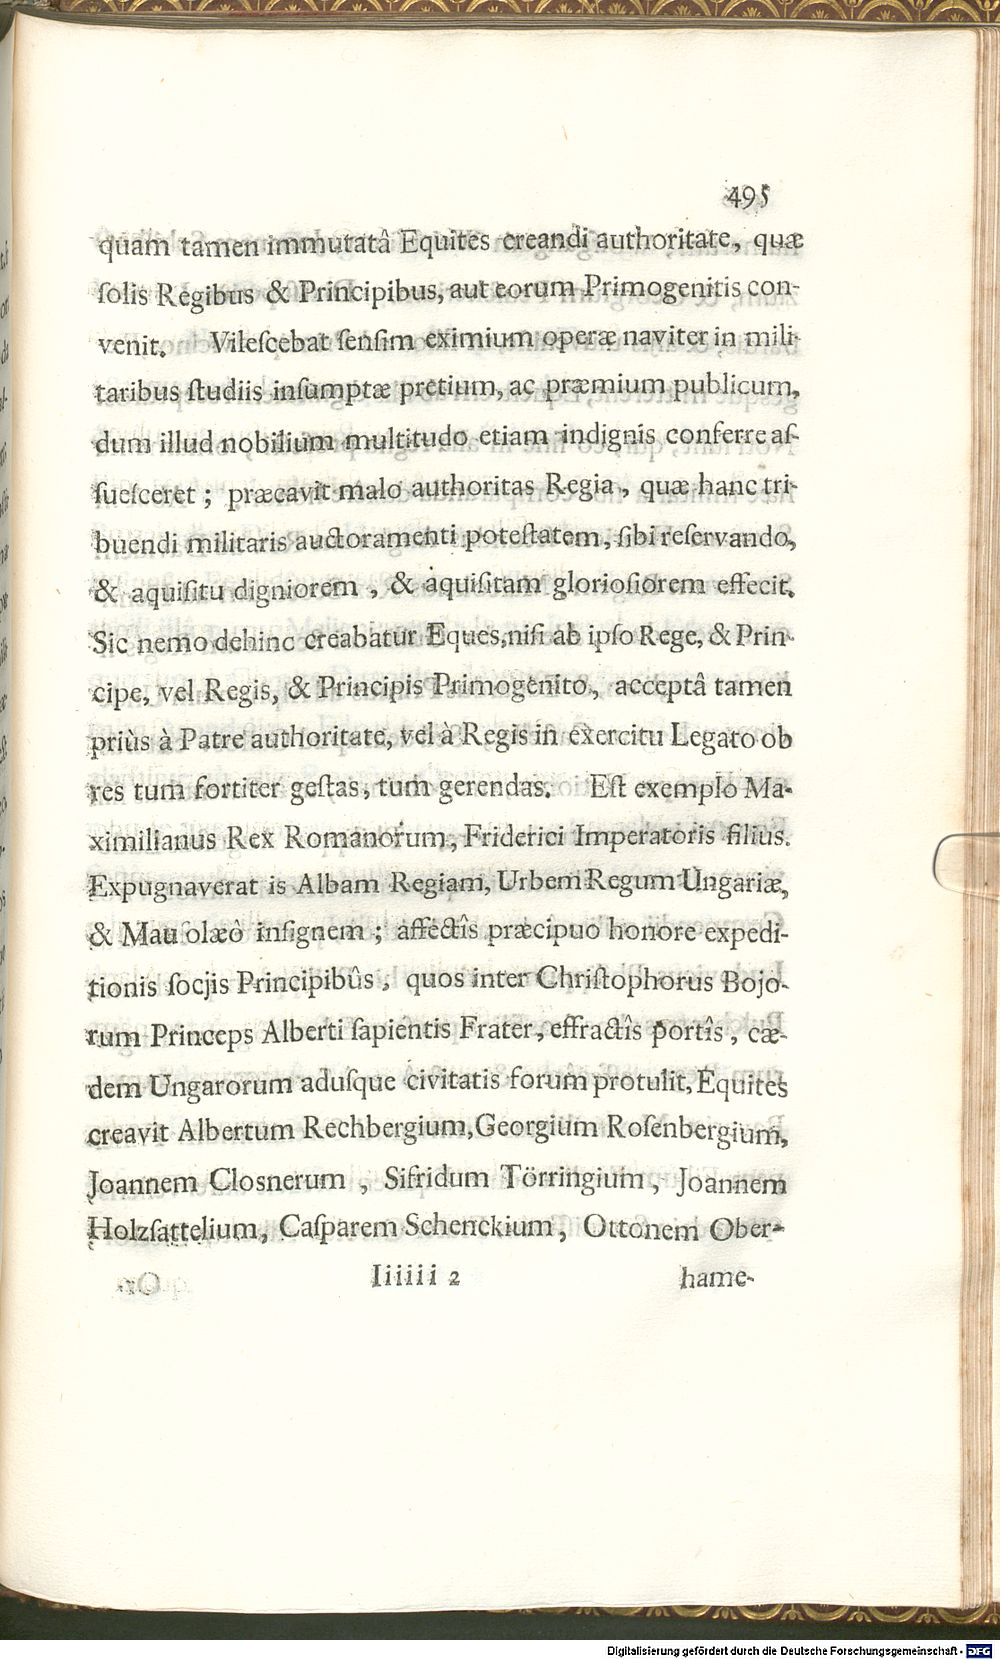 495
quam tamen immutatâ Equites creandi authoritate, quæ
ſolis Regibus & Principibus, aut eorum Primogenitis con-
venit. Vileſcebat ſenſim eximium operæ naviter in mili-
taribus ſtudiis inſumptæ pretium, ac præmium publicum,
dum illud nobilium multitudo etiam indignis conferre aſ-
ſueſceret ; præcavit malo authoritas Regia, quæ hanc tri-
buendi militaris auctoramenti poteſtatem, ſibi reſervando,
& aquiſitu digniorem , & aquiſitam glorioſiorem effecit.
Sic nemo dehinc creabatur Eques, niſi ab ipſo Rege, & Prin-
cipe, vel Regis, & Principis Primogenito, acceptâ tamen
priùs à Patre authoritate, vel à Regis in exercitu Legato ob
res tum fortiter geſtas, tum gerendas. Eſt exemplo Ma-
ximilianus Rex Romanorum, Friderici Imperatoris filius.
Expugnaverat is Albam Regiam, Urbem Regum Ungariæ,
& Mauſolæô inſignem ; affectîs præcipuo honore expedi-
tionis ſocjis Principibûs, quos inter Chriſtophorus Bojo-
rum Princeps Alberti ſapientis Frater, effractîs portîs, cæ-
dem Ungarorum aduſque civitatis forum protulit, Equites
creavit Albertum Rechbergium, Georgium Roſenbergium,
Joannem Closnerum , Sifridum Törringium, Joannem
Holzſattelium, Caſparem Schenckium, Ottonem Ober-
Iiiiii 2 hame-
Digitalisierung gefördert durch die Deutsche Forschungsgemeinschaft - DFG